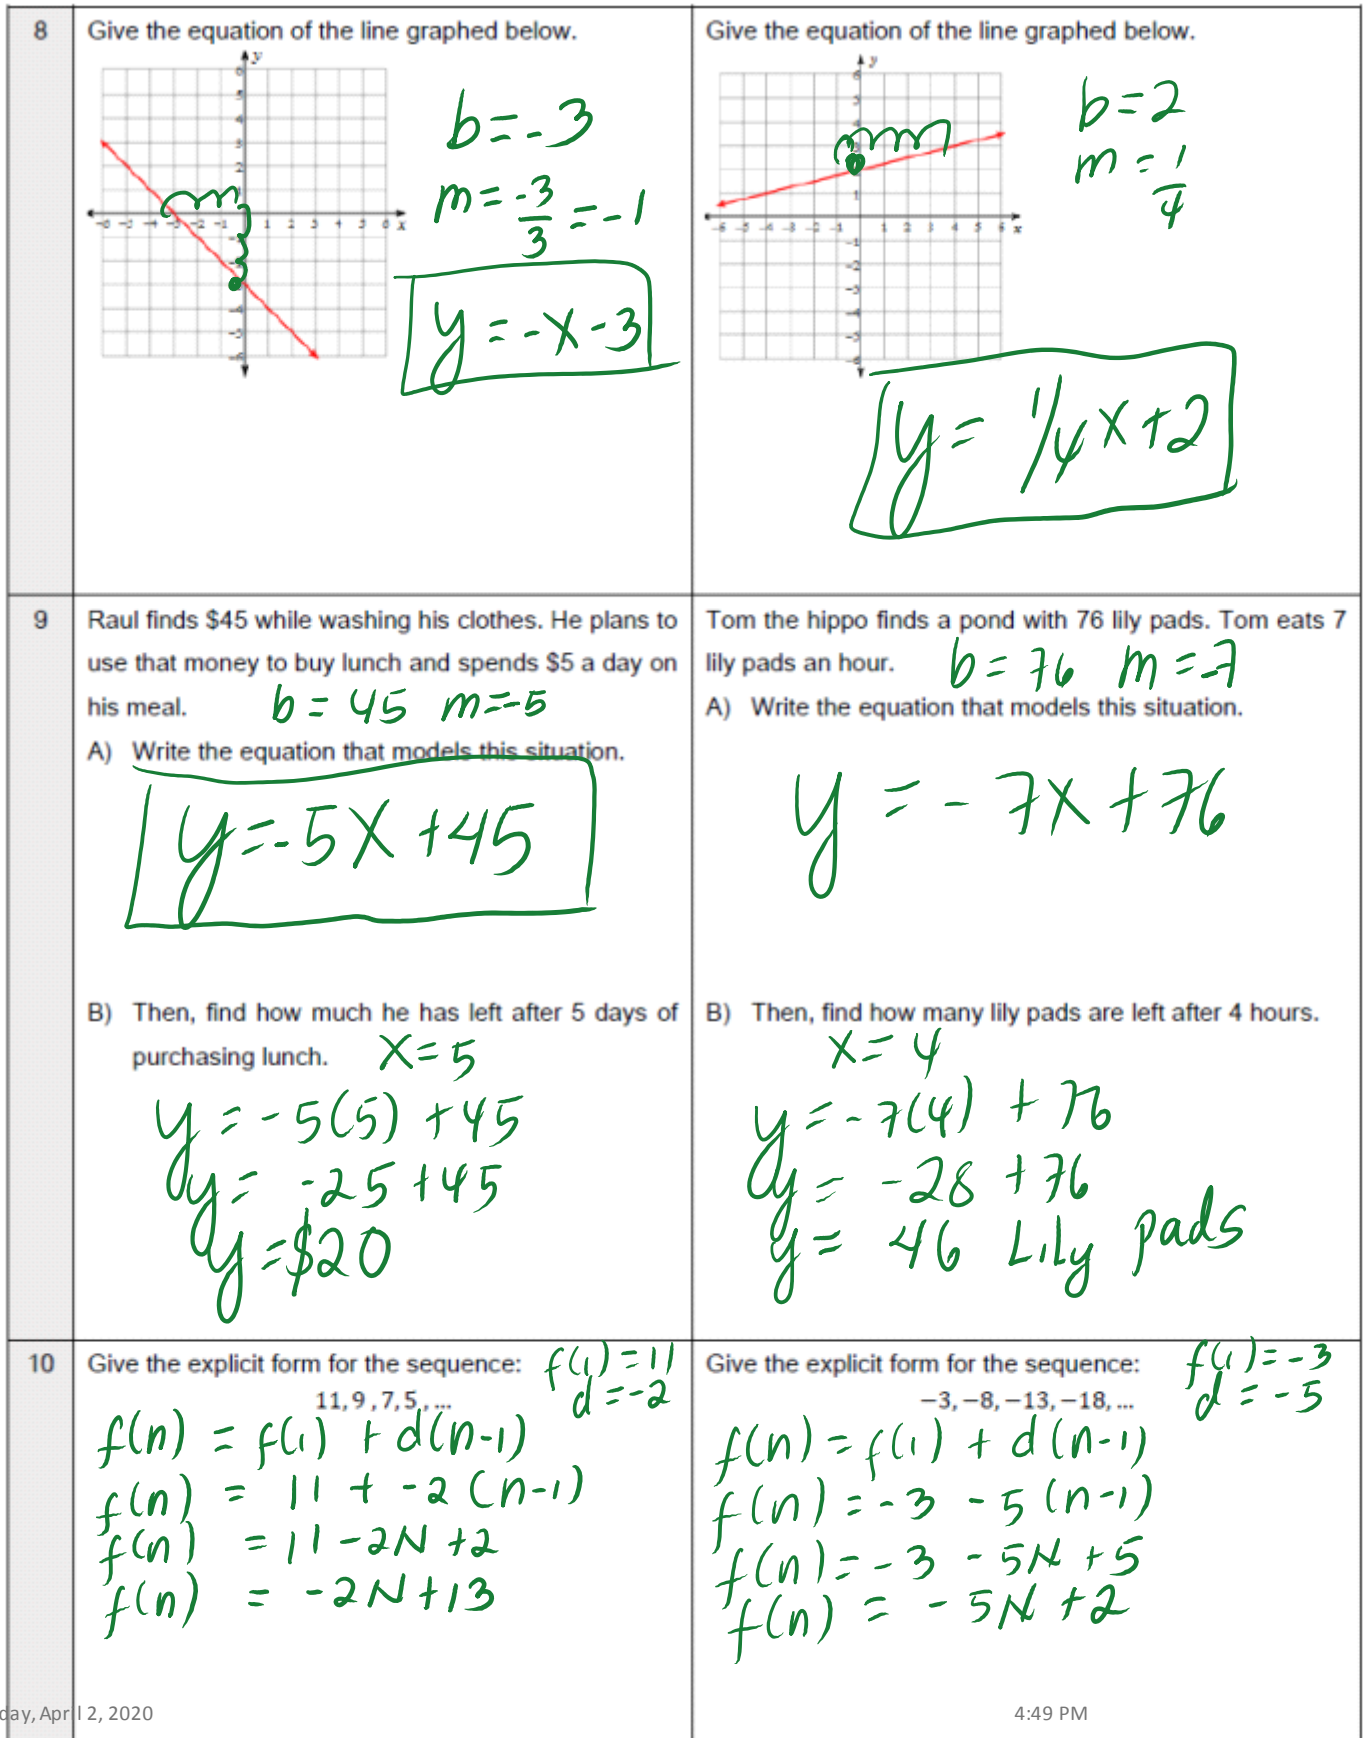 8
Give the equation of the line graphed below.
b=-3
m=-3/3=-1
y=-x-3
Give the equation of the line graphed below.
b=2
m=1/4
y=1/4x+2
9
Raul finds $45 while washing his clothes. He plans to
use that money to buy lunch and spends $5 a day on
his meal.
b=45 m=-5
A) Write the equation that models this situation.
y=-5x+45
B) Then, find how much he has left after 5 days of
purchasing lunch.
x=5
y=-5(5)+45
y=-25+45
y=$20
Tom the hippo finds a pond with 76 lily pads. Tom eats 7
lily pads an hour.
b=76 m=-7
A) Write the equation that models this situation.
y=-7x+76
B) Then, find how many lily pads are left after 4 hours.
x=4
y=-7(4)+76
y=-28+76
y=46 Lily pads
10
Give the explicit form for the sequence:
f(1)=11
d=-2
11, 9 , 7, 5 , , ...
f(n) = f(1) + d(n-1)
f(n) = 11 + -2(n-1)
f(n) = 11-2N+2
f(n) = -2N+13
Give the explicit form for the sequence:
f(1)=-3
d=-5
−3, −8, −13, −18, ...
f(n)=f(1) + d(n-1)
f(n)=-3 -5(n-1)
f(n)=-3 -5N+5
f(n) = -5N+2
day, April 2, 2020
4:49 PM